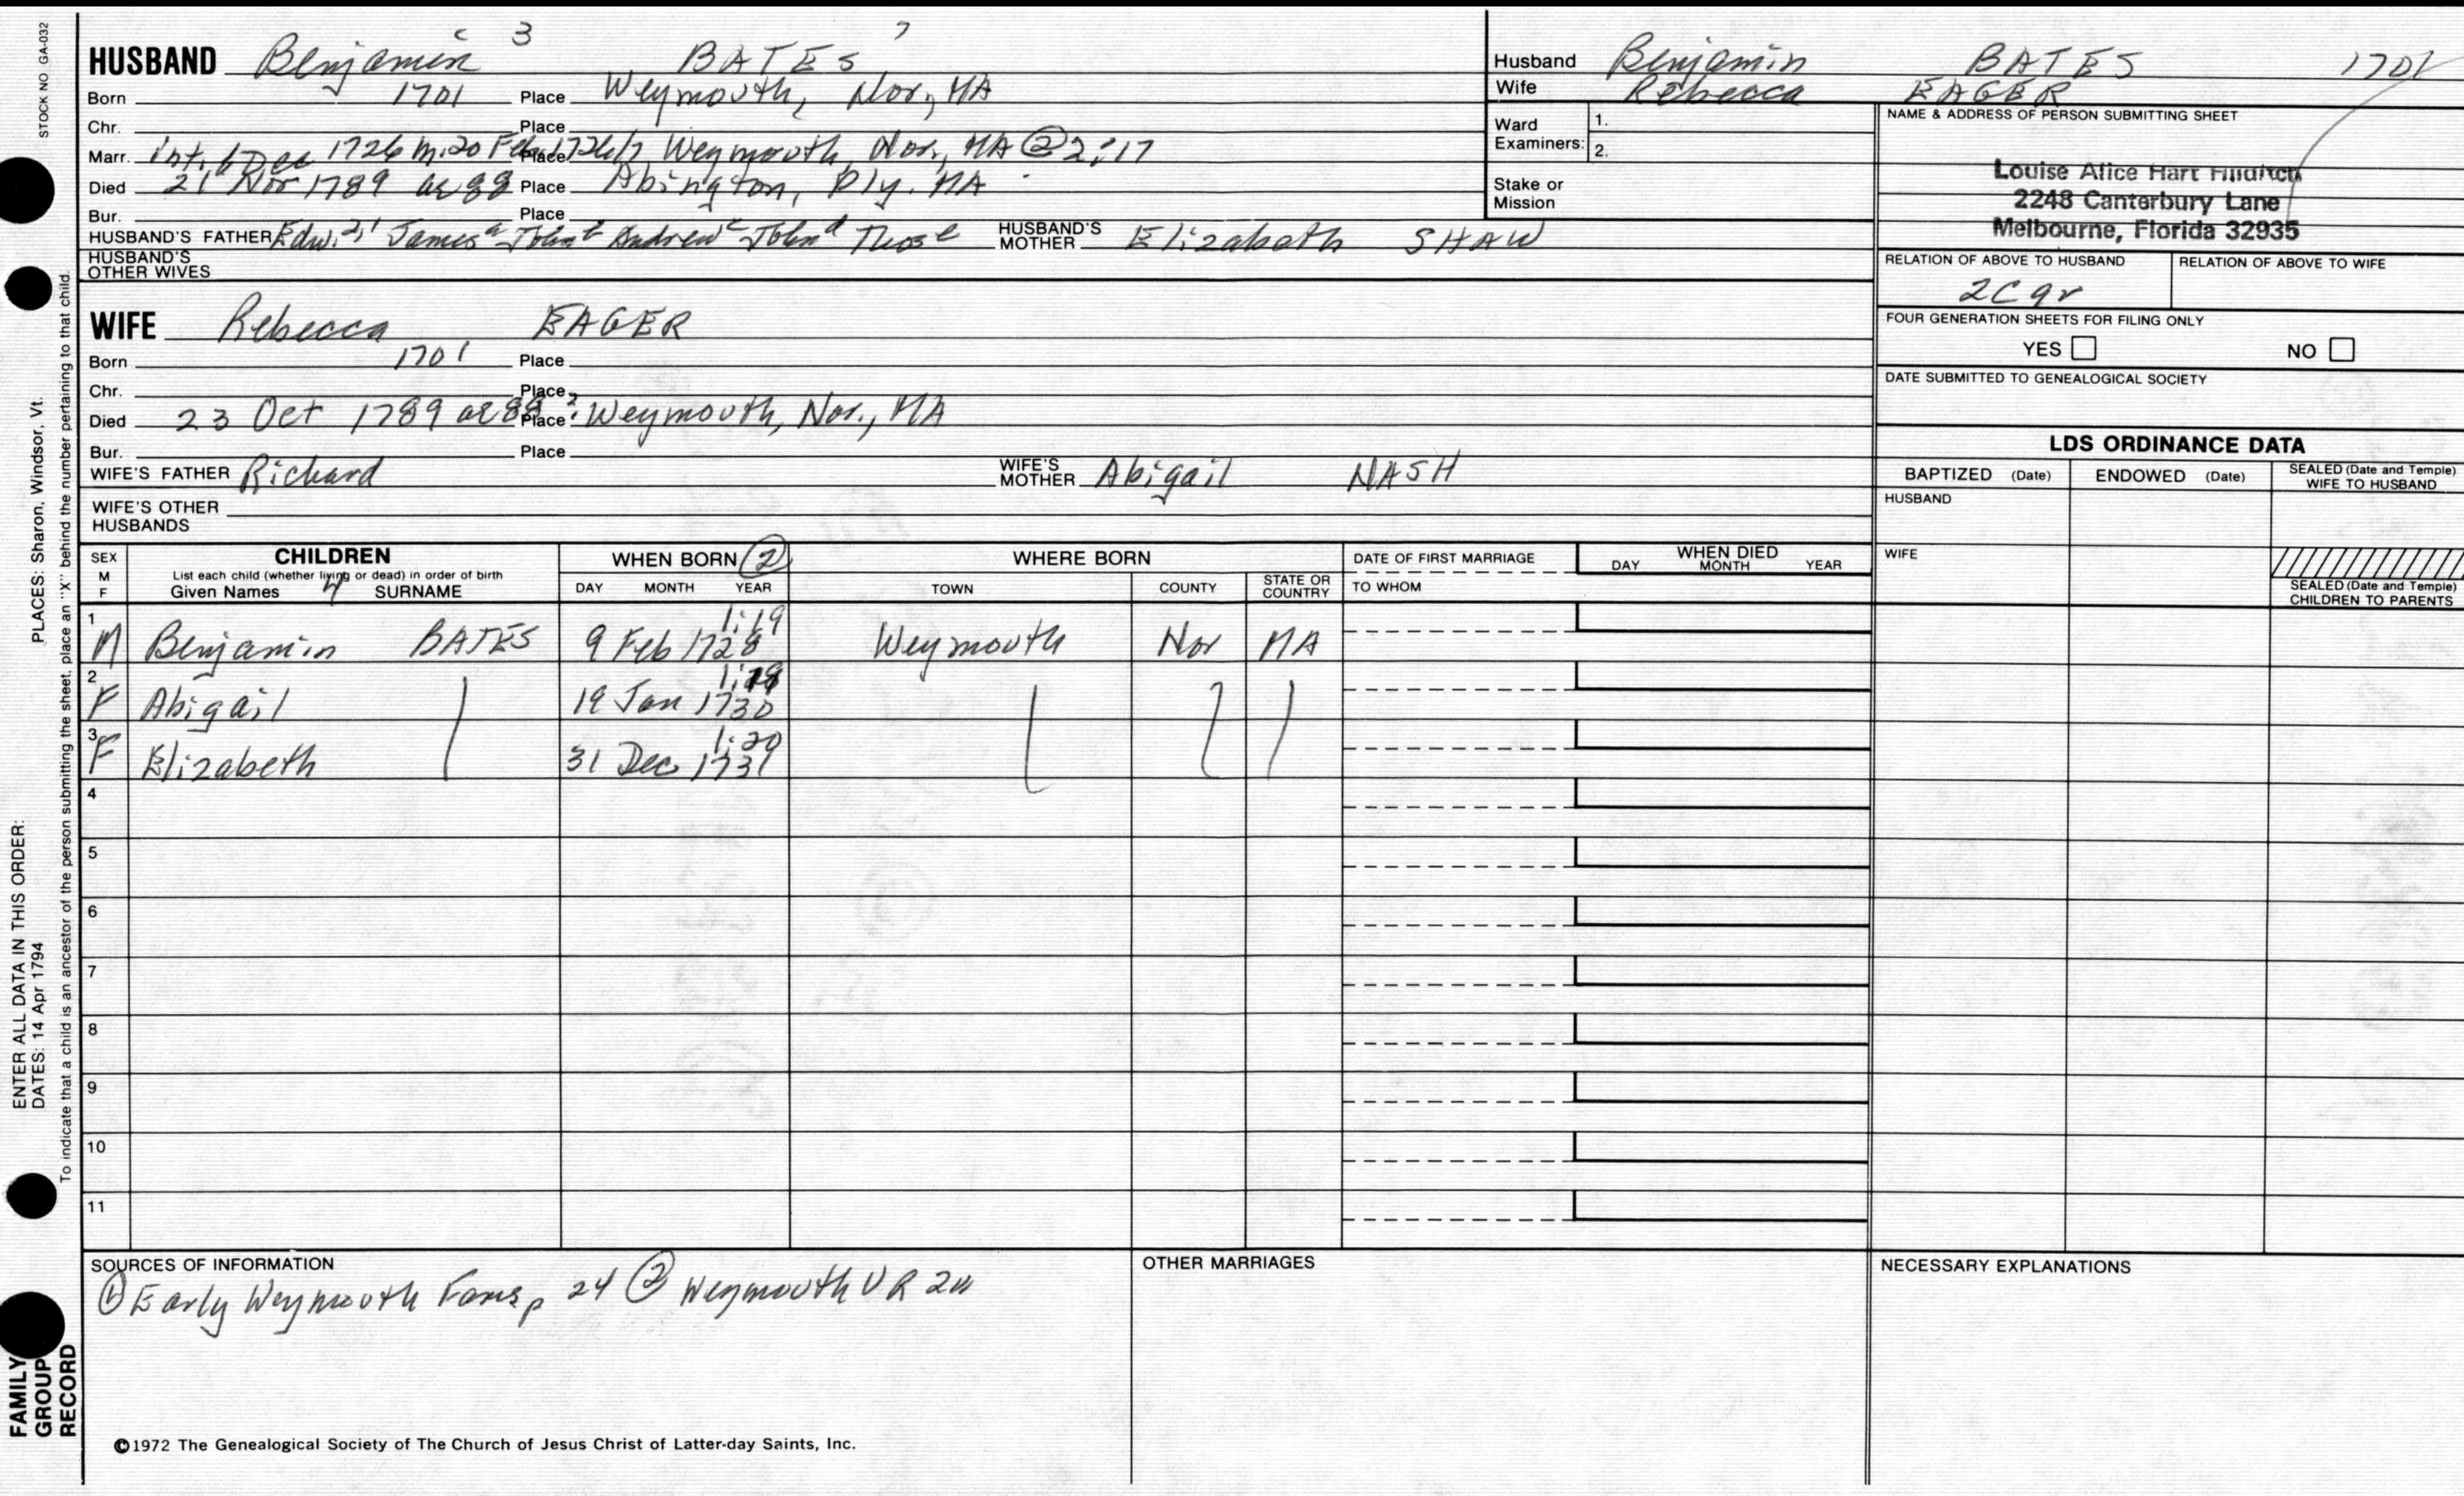 STOCK NO GA-032
HUSBAND Benjamin 3 BATES
Born 1701 Place Weymouth, Nor, MA
Chr. Place
Marr. int. 6 Dec 1726 m. 20 Feb 1726/7 Place Weymouth, Nor., MA @ 2:17
Died 21 Nov 1789 ae 88 Place Abington, Ply. MA
Bur. Place
HUSBAND'S FATHER Edw. James John Andrew John Thos HUSBAND'S MOTHER Elizabeth SHAW
HUSBAND'S OTHER WIVES
WIFE Rebecca EAGER
Born 1701 Place
Chr. Place
Died 23 Oct 1789 ae 88 Place Weymouth, Nor., MA
Bur. Place
WIFE'S FATHER Richard WIFE'S MOTHER Abigail NASH
WIFE'S OTHER HUSBANDS
Husband Benjamin BATES 1701
Wife Rebecca EAGER
Ward Examiners: 1.
2.
Stake or Mission
NAME & ADDRESS OF PERSON SUBMITTING SHEET
Louise Alice Hart
2248 Canterbury Lane
Melbourne, Florida 32935
RELATION OF ABOVE TO HUSBAND RELATION OF ABOVE TO WIFE
2C9r
FOUR GENERATION SHEETS FOR FILING ONLY
YES NO
DATE SUBMITTED TO GENEALOGICAL SOCIETY
LDS ORDINANCE DATA
BAPTIZED (Date) ENDOWED (Date) SEALED (Date and Temple) WIFE TO HUSBAND
HUSBAND
WIFE
SEALED (Date and Temple) CHILDREN TO PARENTS
SEX M F CHILDREN WHEN BORN 2 WHERE BORN DATE OF FIRST MARRIAGE WHEN DIED
List each child (whether living or dead) in order of birth
Given Names SURNAME DAY MONTH YEAR TOWN COUNTY STATE OR COUNTRY TO WHOM DAY MONTH YEAR
1 M Benjamin BATES 9 Feb 1728 1:19 Weymouth Nor MA
2 F Abigail 19 Jan 1730
3 F Elizabeth 31 Dec 1731 1:20
4
5
6
7
8
9
10
11
SOURCES OF INFORMATION
1 Early Weymouth Fams p 24 2 Weymouth VR
OTHER MARRIAGES
NECESSARY EXPLANATIONS
©1972 The Genealogical Society of The Church of Jesus Christ of Latter-day Saints, Inc.
FAMILY GROUP RECORD
ENTER ALL DATA IN THIS ORDER:
DATES: 14 Apr 1794 PLACES: Sharon, Windsor, Vt.
To indicate that a child is an ancestor of the person submitting the sheet, place an "X" behind the number pertaining to that child.